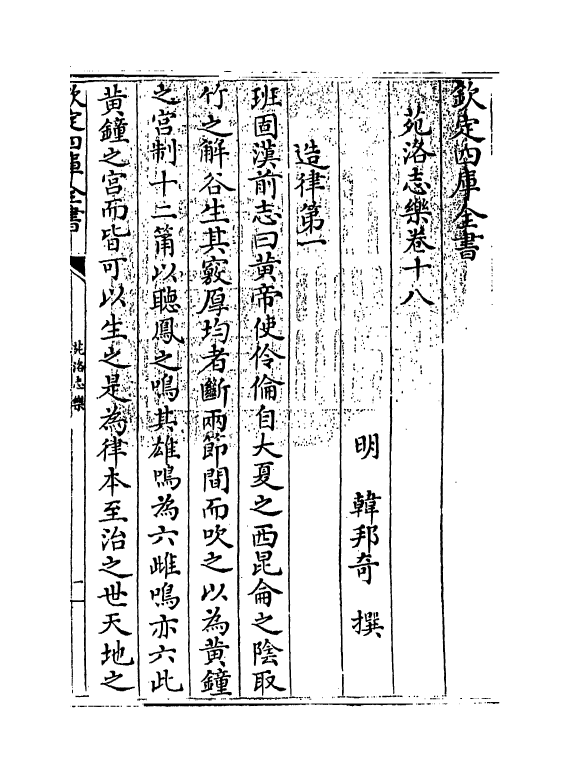 欽定四庫全書
苑洛志樂卷十八
明 韓邦奇 撰
造律第一
班固漢前志曰黄帝使伶倫自大夏之西昆侖之隂取
竹之解谷生其竅厚均者斷兩節間而吹之以為黄鐘
之宮制十二筩以聽鳳之鳴其雄鳴為六雌鳴亦六此
黄鐘之宮而皆可以生之是為律本至治之世天地之
欽定四庫全書
苑洛志樂
一